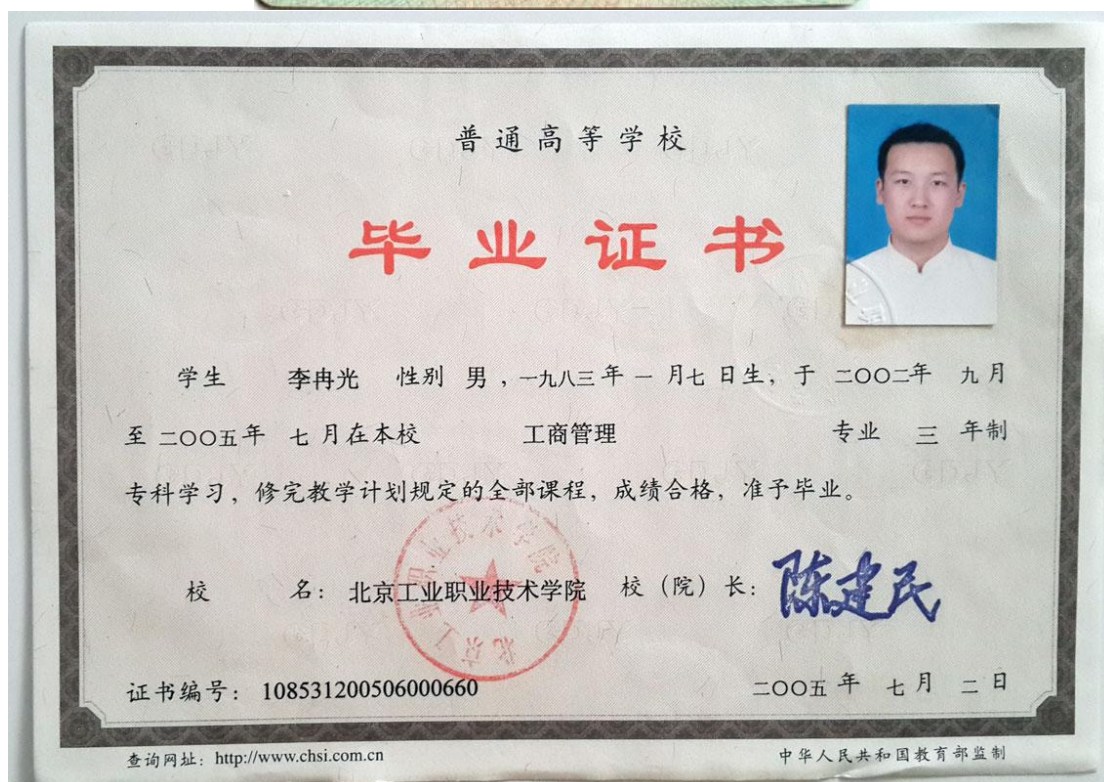 普通高等学校
毕业证书
学生 李冉光 性别 男 ，一九八三年 一 月七 日生，于 二〇〇二年 九月
至 二〇〇五年 七 月在本校 工商管理 专业 三 年制
专科学习，修完教学计划规定的全部课程，成绩合格，准予毕业。
校 名：北京工业职业技术学院 校（院）长：陈建民
北京工业职业技术学院
证书编号：108531200506000660
二〇〇五 年 七 月 二 日
查询网址：http://www.chsi.com.cn
中华人民共和国教育部监制